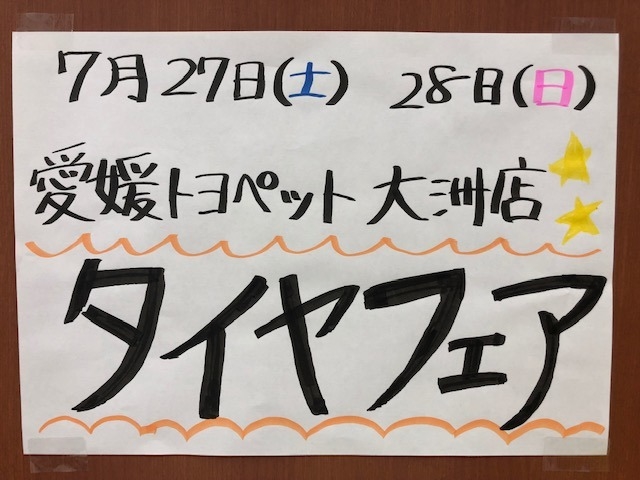 7月27日(土) 28日(日)
愛媛トヨペット 大洲店
タイヤフェア